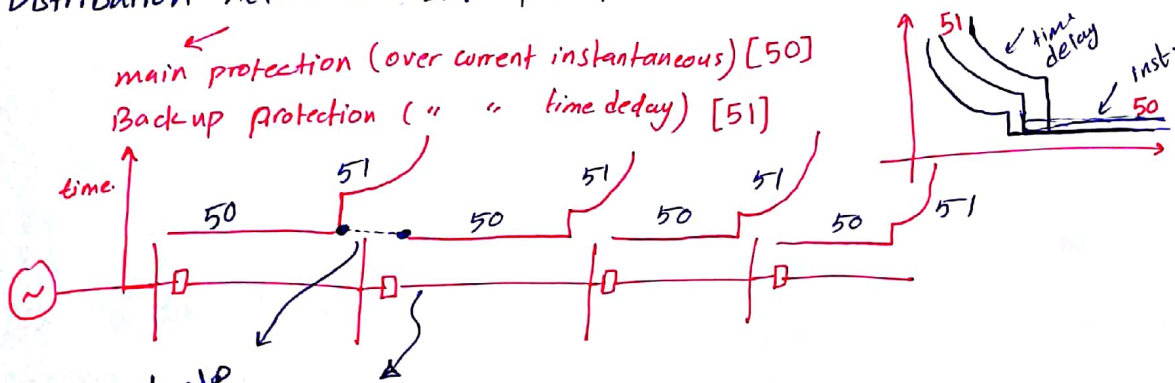 main protection (over current instantaneous) [50]
Back up protection ( " " time deday) [51]
51
time delay
inst.
50
time.
50
51
50
51
50
51
50
51
~